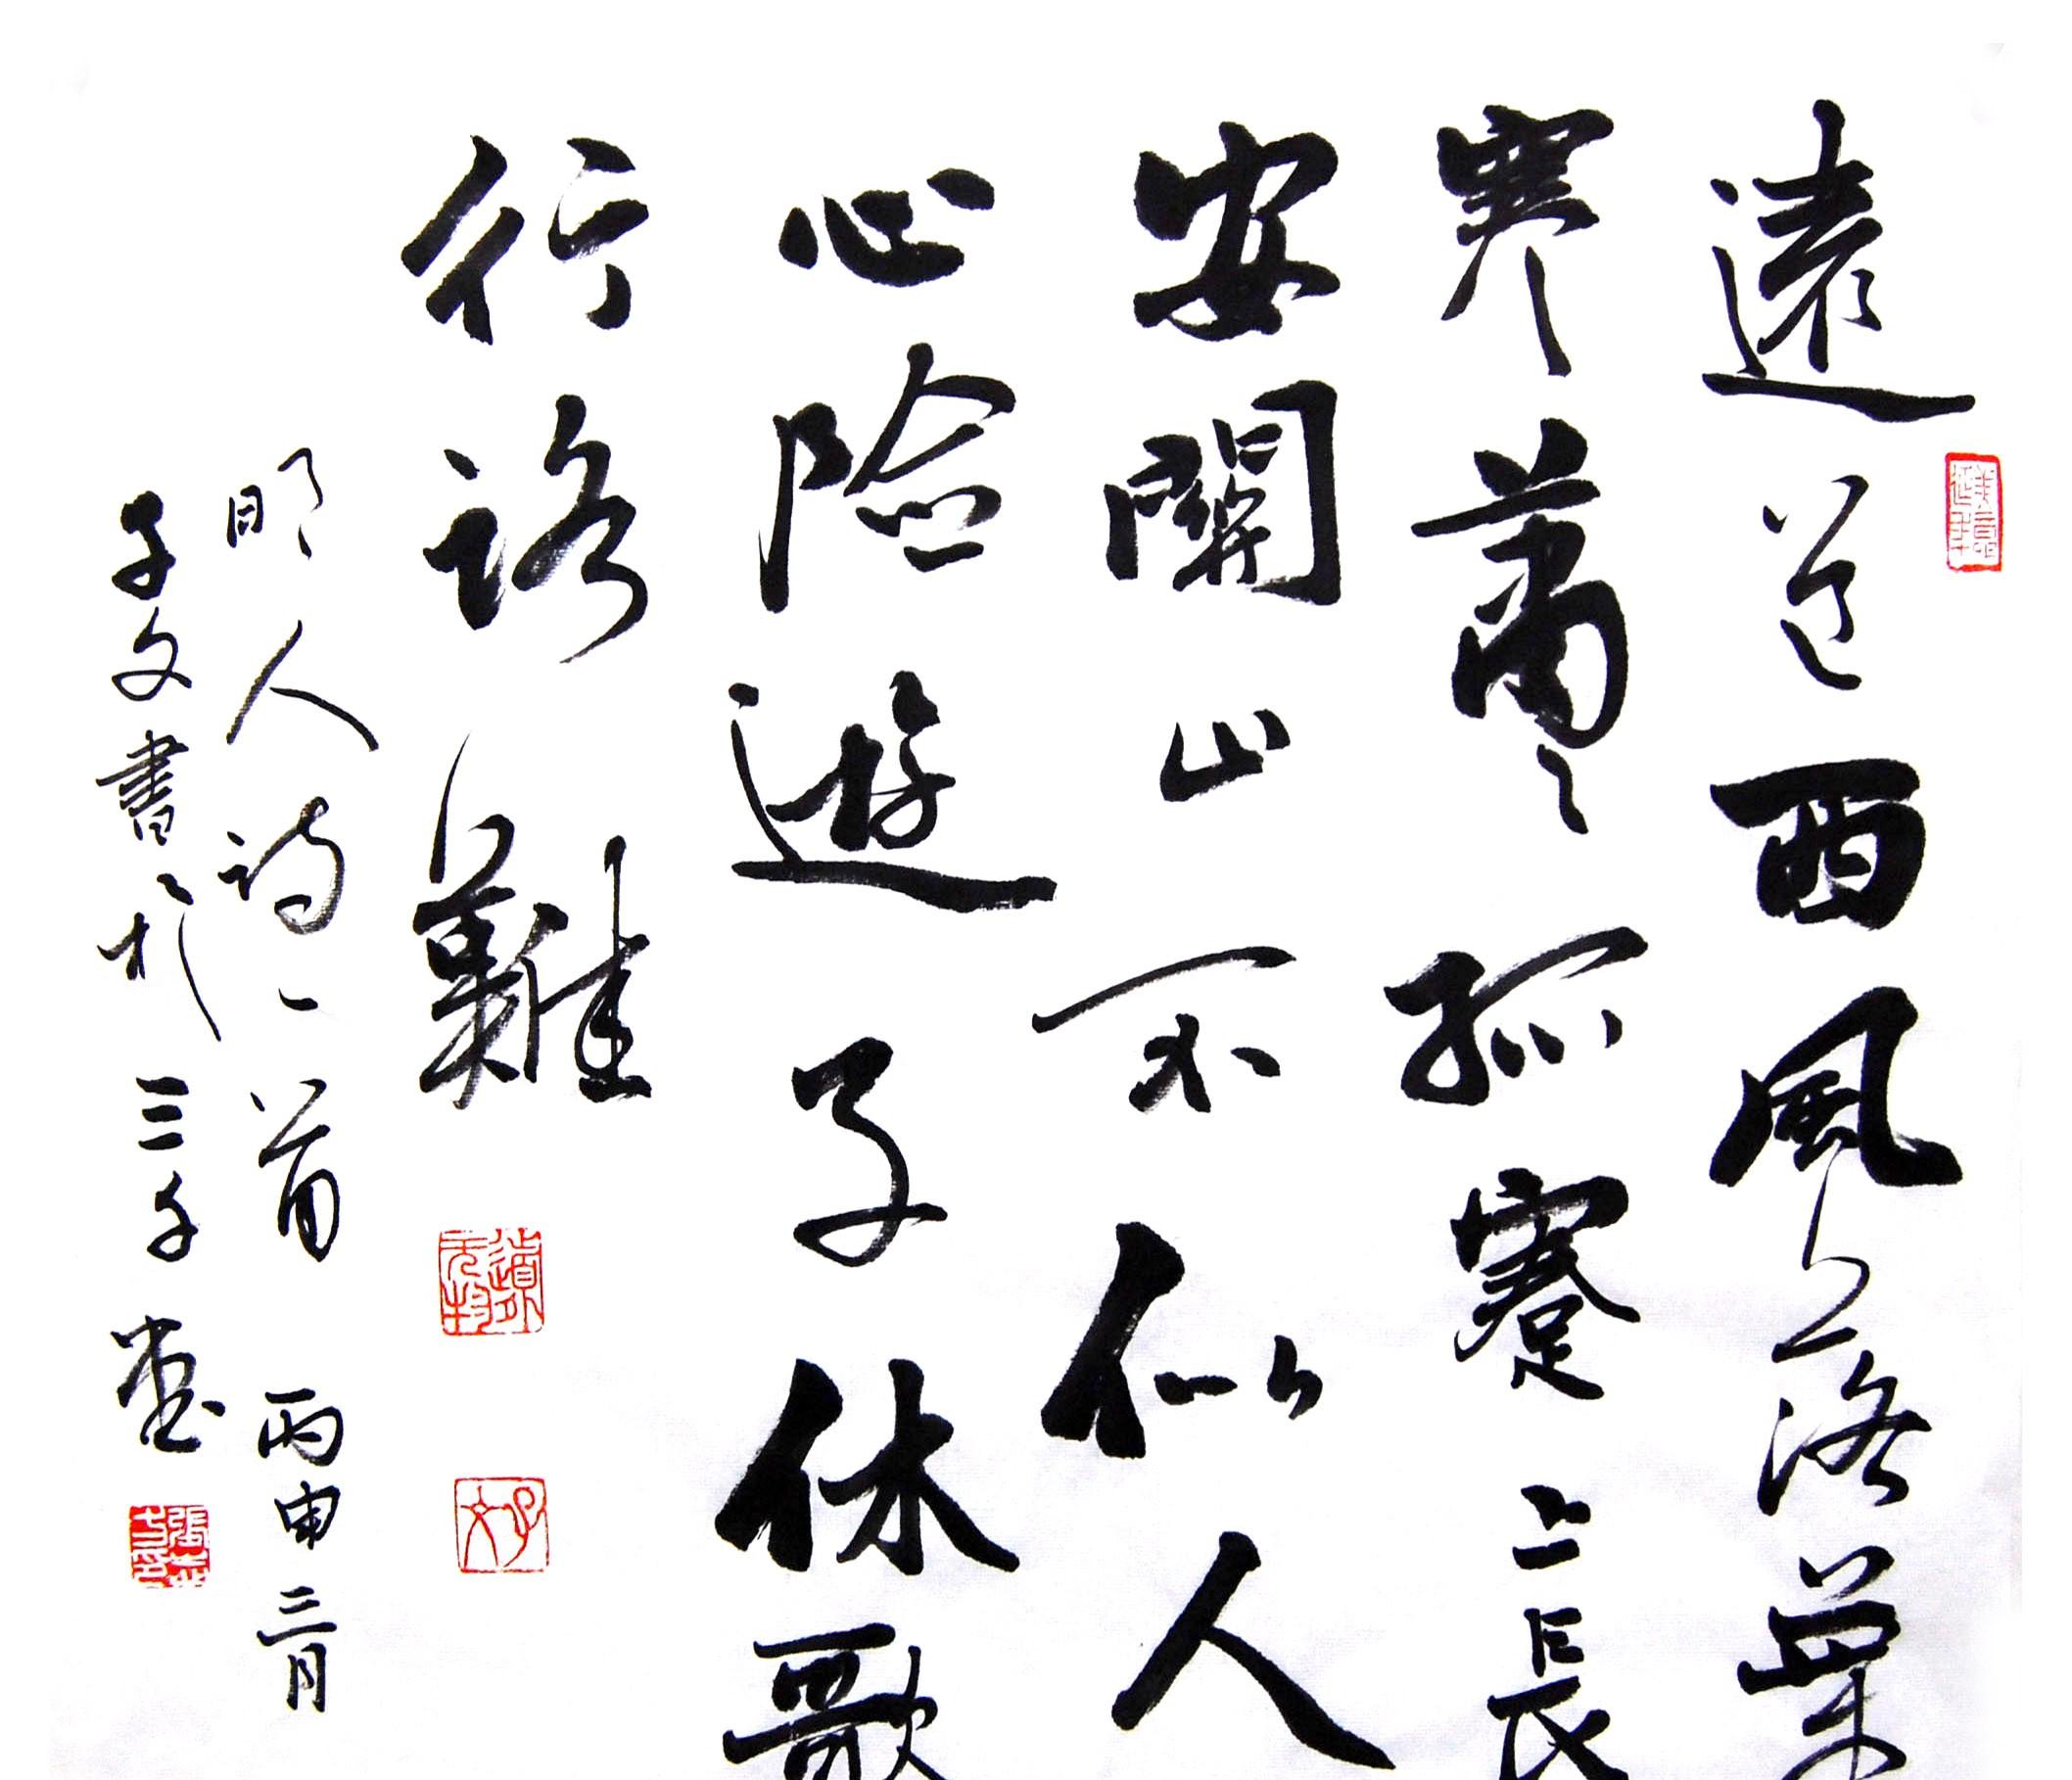 遠道西風落葉
寒蕭蕭孤蹇上長
安關山不似人
心險遊子休歌
行路難
明人詩一首 丙申三月
子文書於三千堂
子文